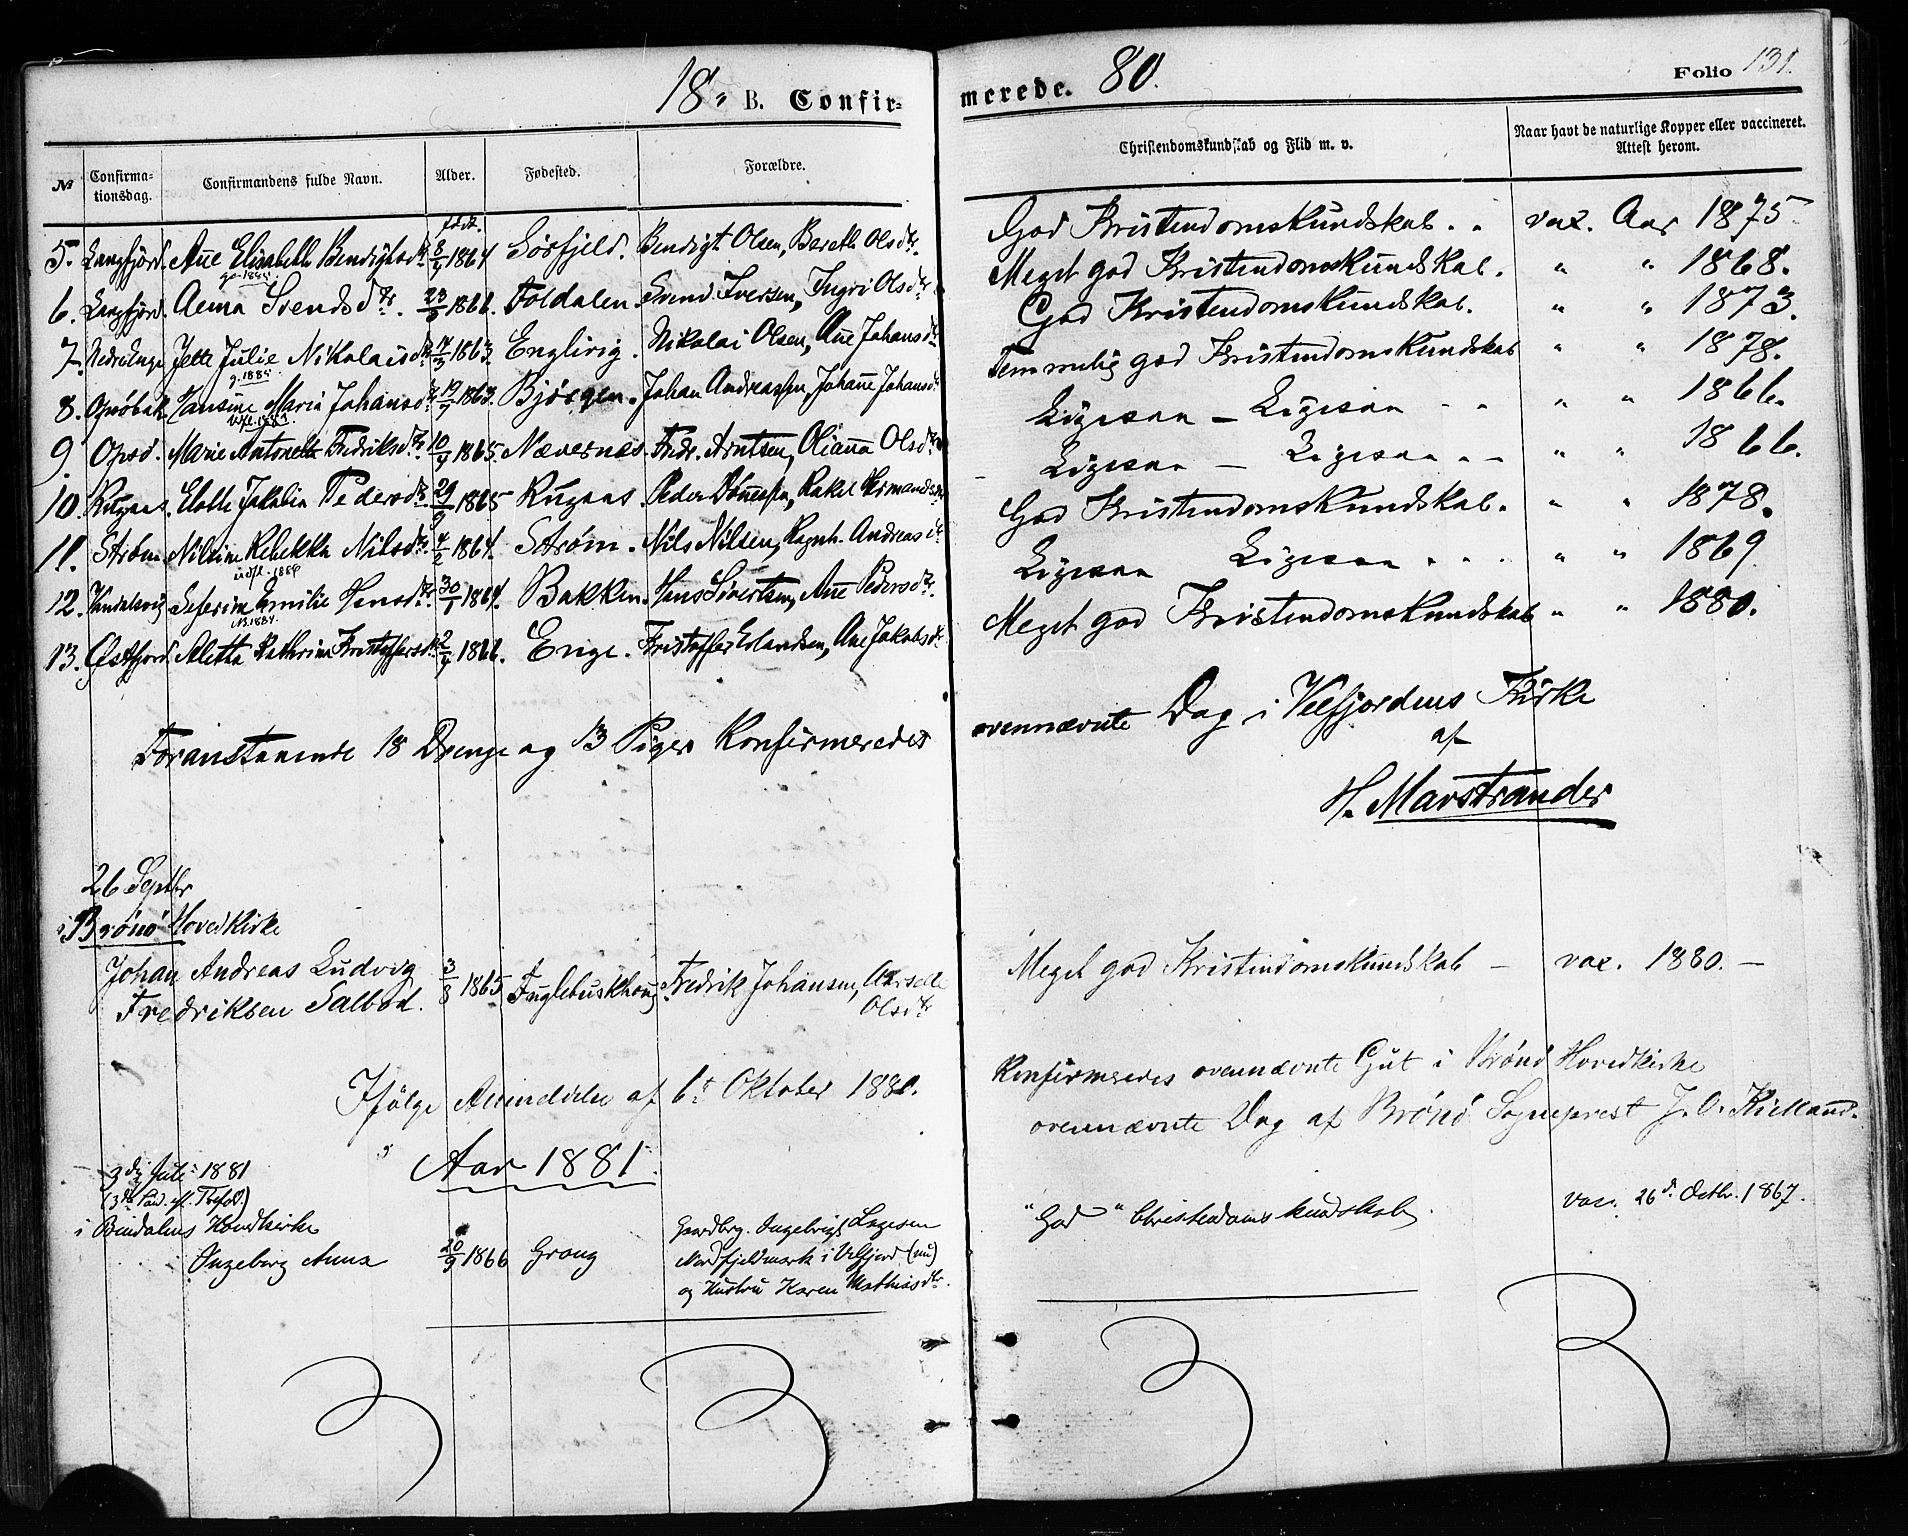 18 B. Confir-
merede. 80.
Folio 131.
№
Confirma-
tionsdag.
Confirmandens fulde Navn.
Alder.
Fødested.
Forældre.
Christendomskundskab og Flid m. v.
Naar havt de naturlige Kopper eller vaccineret.
Attest herom.
født
5. Langfjord. Ane Elisabeth Bendigtsdtr 1864 Sørfjeld. Bendigt Olsen, Bereth Olsdtr. God Kristendomskundskab. vax. Aar 1875
6. Langfjord. Anna Svendsdtr. 1866. Toldalen. Svend Iversen, Ingri Olsdtr Meget god Kristendomskundskab. " " 1868.
7. Nedre Enge Jette Julie Nikolaisdtr 1863. Englivig. Nikolai Olsen, Ane Johansdtr God Kristendomskundskab. " " 1873.
8. Hansine Maria Johansdtr 19/9 1863. Bjørgen. Johan Andreassen, Johane Johansdtr Temmelig god Kristendomskundskab " " 1878.
9. Opsd. Marie Antonette Fredriksdtr 10/9 1865. Nævernes. Fredr. Arntsen, Oliana Olsdtr Ligesaa — Ligesaa " " 1866.
10. Rugaas. Elotte Jakobin Pedersdtr. 29/9 1865 Rugaas. Peder Dønnesen, Rakel Hermandsdtr Ligesaa — Ligesaa " " 1866.
11. Strøm Nilsine Rebekka Nilsdtr. 4/2 1864. Strøm. Nils Nilsen, Ragnh. Andreasdtr God Kristendomskundskab. " " 1878.
12. Seferine Emilie Hansdtr. 30/1 1864. Bakken. Hans Sivertsen, Ane Pedersdtr. Ligesaa Ligesaa " " 1869
13. Østfjord. Aletta Kathrina Kristoffersdtr 2/4 1866. Enge. Kristoffer Erlandsen, Ane Jakobsdtr Meget god Kristendomskundskab " " 1880.
Foranstaaende 18 Drenge og 13 Piger Konfirmeredes
ovennævnte Dag i Velfjordens Kirke
af
H. Marstrander
26 Septbr
i Brønø Hovedkirke
Johan Andreas Ludvig
Fredriksen Salbod. 3/8 1865 Fuglebuskhaug Fredrik Johansen,
Olsdtr
Meget god Kristendomskundskab — vax. 1880. —
Ifølge Anmeldelse af 6te Oktober 1880.
Konfirmeredes ovennævnte Gut i Brønø Hovedkirke
ovennævnte Dag af Brønø Sogneprest J. O. Kielland.
Aar 1881.
3die Juli 1881
(3de Sød. ef. Trefol.)
i Bindalens Hovedkirke
Ingeborg Anna 20/9 1866 Grong
Gaardbrg. Ingebrigt Lagesen
Nordfjeldmark i Velfjord (nu)
og Hustru Karen Mathiasdtr.
"God" Christendomskundskab. Vac. 26d. Octbr. 1867.